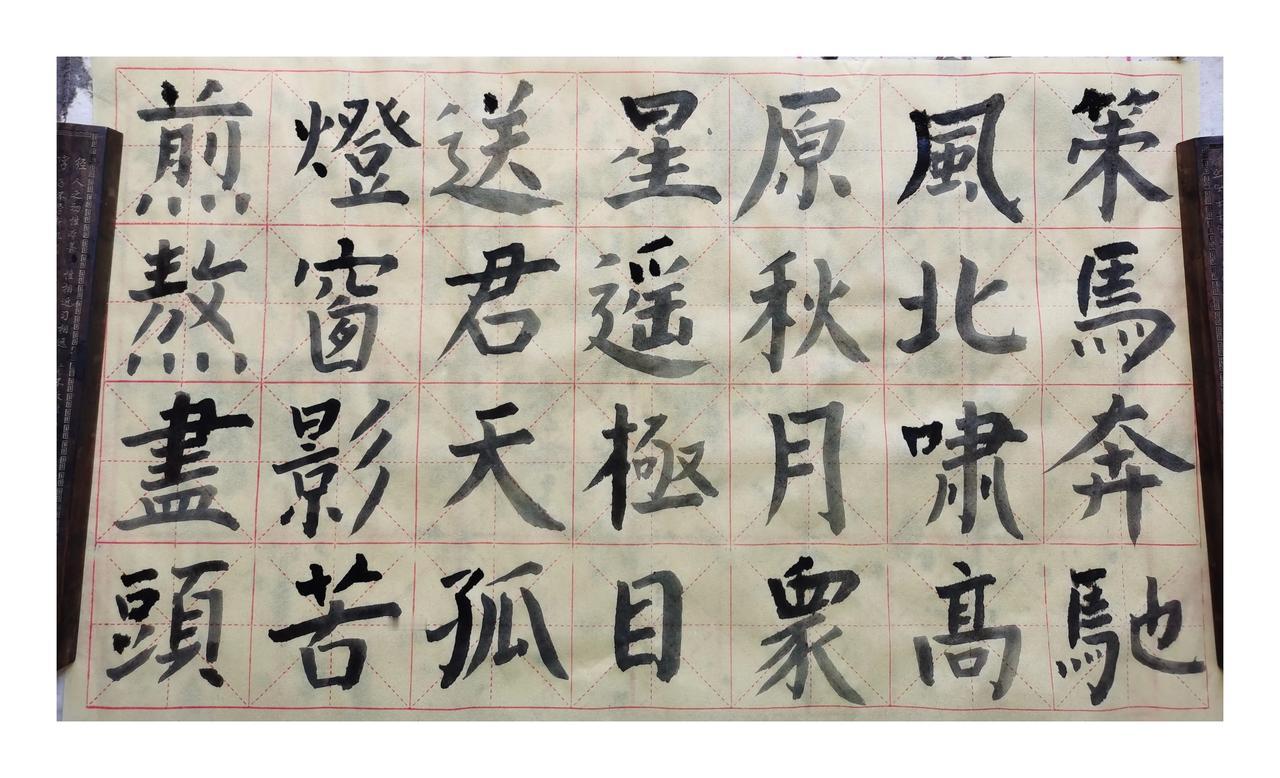 策馬奔馳
風北嘯髙
原秋月衆
星遥極目
送君天孤
燈窗影苦
煎熬盡頭